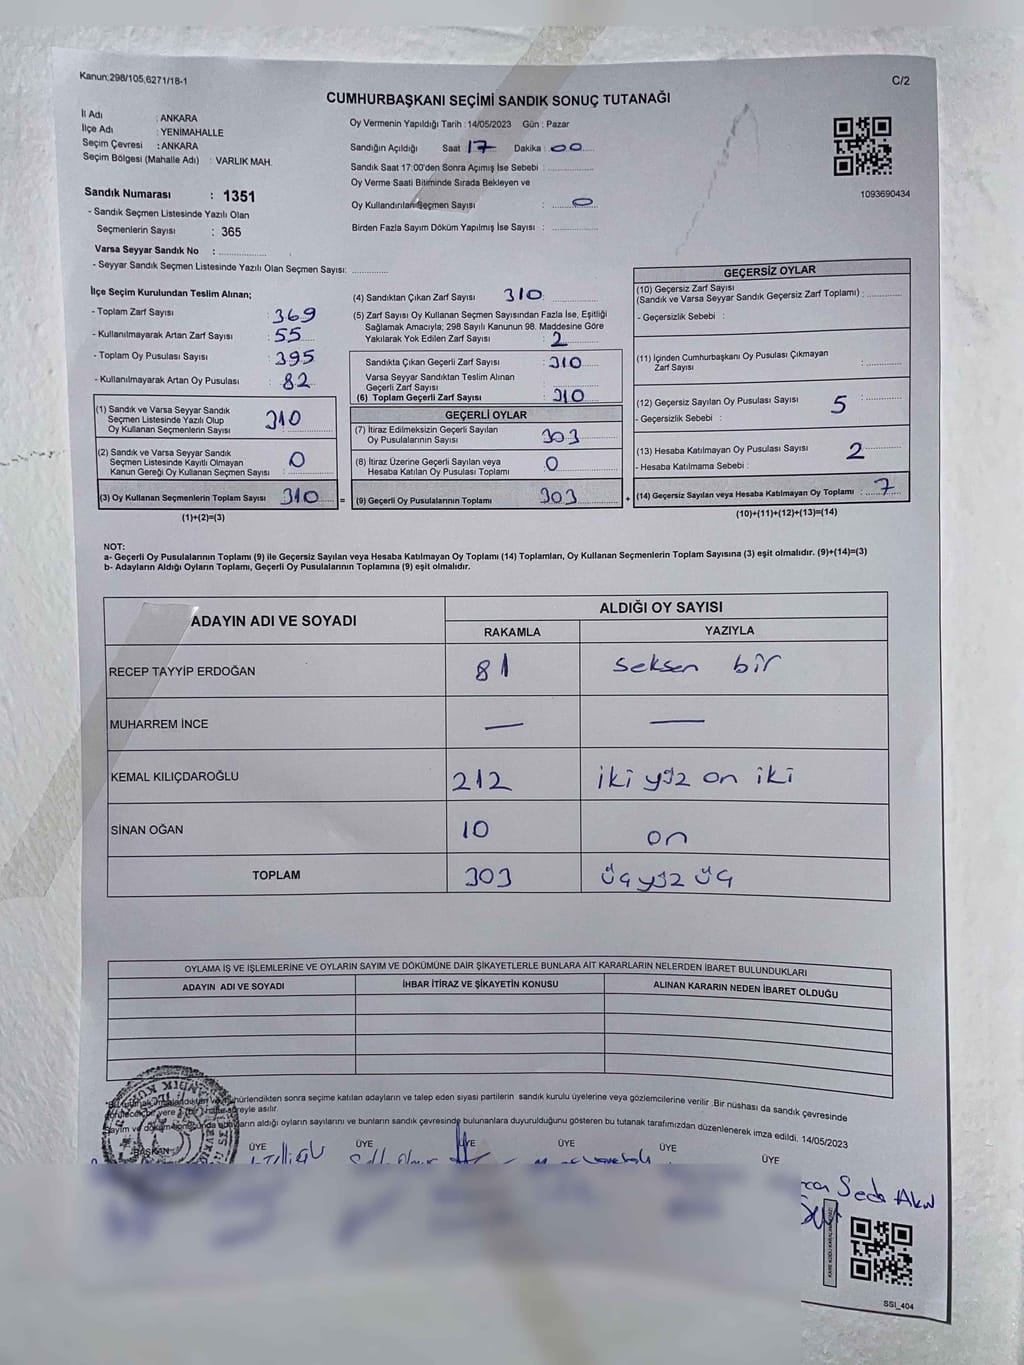 Kanun;298/105,6271/18-1
C/2
CUMHURBAŞKANI SEÇİMİ SANDIK SONUÇ TUTANAĞI
İl Adı : ANKARA
İlçe Adı : YENİMAHALLE
Seçim Çevresi : ANKARA
Seçim Bölgesi (Mahalle Adı) : VARLIK MAH.
Oy Vermenin Yapıldığı Tarih : 14/05/2023 Gün : Pazar
Sandığın Açıldığı Saat : 17 Dakika : 00
Sandık Saat 17:00'den Sonra Açımış İse Sebebi :
Oy Verme Saati Bitiminde Sırada Bekleyen ve
Oy Kullandırılan Seçmen Sayısı : 0
Birden Fazla Sayım Döküm Yapılmış İse Sayısı :
1093690434
Sandık Numarası : 1351
- Sandık Seçmen Listesinde Yazılı Olan
Seçmenlerin Sayısı : 365
Varsa Seyyar Sandık No :
- Seyyar Sandık Seçmen Listesinde Yazılı Olan Seçmen Sayısı:
İlçe Seçim Kurulundan Teslim Alınan;
- Toplam Zarf Sayısı : 369
- Kullanılmayarak Artan Zarf Sayısı : 55
- Toplam Oy Pusulası Sayısı : 395
- Kullanılmayarak Artan Oy Pusulası : 82
(1) Sandık ve Varsa Seyyar Sandık
Seçmen Listesinde Yazılı Olup
Oy Kullanan Seçmenlerin Sayısı 310
(2) Sandık ve Varsa Seyyar Sandık
Seçmen Listesinde Kayıtlı Olmayan
Kanun Gereği Oy Kullanan Seçmen Sayısı : 0
(3) Oy Kullanan Seçmenlerin Toplam Sayısı : 310 =
(1)+(2)=(3)
(4) Sandıktan Çıkan Zarf Sayısı : 310
(5) Zarf Sayısı Oy Kullanan Seçmen Sayısından Fazla İse, Eşitliği
Sağlamak Amacıyla; 298 Sayılı Kanunun 98. Maddesine Göre
Yakılarak Yok Edilen Zarf Sayısı : 2
Sandıkta Çıkan Geçerli Zarf Sayısı : 310
Varsa Seyyar Sandıktan Teslim Alınan
Geçerli Zarf Sayısı
(6) Toplam Geçerli Zarf Sayısı : 310
GEÇERLİ OYLAR
(7) İtiraz Edilmeksizin Geçerli Sayılan
Oy Pusulalarının Sayısı : 303
(8) İtiraz Üzerine Geçerli Sayılan veya
Hesaba Katılan Oy Pusulası Toplamı : 0
(9) Geçerli Oy Pusulalarının Toplamı : 303 +
GEÇERSİZ OYLAR
(10) Geçersiz Zarf Sayısı
(Sandık ve Varsa Seyyar Sandık Geçersiz Zarf Toplamı) :
- Geçersizlik Sebebi :
(11) İçinden Cumhurbaşkanı Oy Pusulası Çıkmayan
Zarf Sayısı :
(12) Geçersiz Sayılan Oy Pusulası Sayısı : 5
- Geçersizlik Sebebi :
(13) Hesaba Katılmayan Oy Pusulası Sayısı : 2
- Hesaba Katılmama Sebebi :
(14) Geçersiz Sayılan veya Hesaba Katılmayan Oy Toplamı : 7
(10)+(11)+(12)+(13)=(14)
NOT:
a- Geçerli Oy Pusulalarının Toplamı (9) ile Geçersiz Sayılan veya Hesaba Katılmayan Oy Toplamı (14) Toplamları, Oy Kullanan Seçmenlerin Toplam Sayısına (3) eşit olmalıdır. (9)+(14)=(3)
b- Adayların Aldığı Oyların Toplamı, Geçerli Oy Pusulalarının Toplamına (9) eşit olmalıdır.
ADAYIN ADI VE SOYADI
ALDIĞI OY SAYISI
RAKAMLA YAZIYLA
RECEP TAYYİP ERDOĞAN 81 seksen bir
MUHARREM İNCE — —
KEMAL KILIÇDAROĞLU 212 iki yüz on iki
SİNAN OĞAN 10 on
TOPLAM 303 üç yüz üç
OYLAMA İŞ VE İŞLEMLERİNE VE OYLARIN SAYIM VE DÖKÜMÜNE DAİR ŞİKAYETLERLE BUNLARA AİT KARARLARIN NELERDEN İBARET BULUNDUKLARI
ADAYIN ADI VE SOYADI İHBAR İTİRAZ VE ŞİKAYETİN KONUSU ALINAN KARARIN NEDEN İBARET OLDUĞU
mühürlendikten sonra seçime katılan adayların ve talep eden siyasi partilerin sandık kurulu üyelerine veya gözlemcilerine verilir .Bir nüshası da sandık çevresinde
asılır.
aldığı oyların sayılarını ve bunların sandık çevresinde bulunanlara duyurulduğunu gösteren bu tutanak tarafımızdan düzenlenerek imza edildi. 14/05/2023
BAŞKAN ÜYE ÜYE ÜYE ÜYE ÜYE
Seda
SSI_404